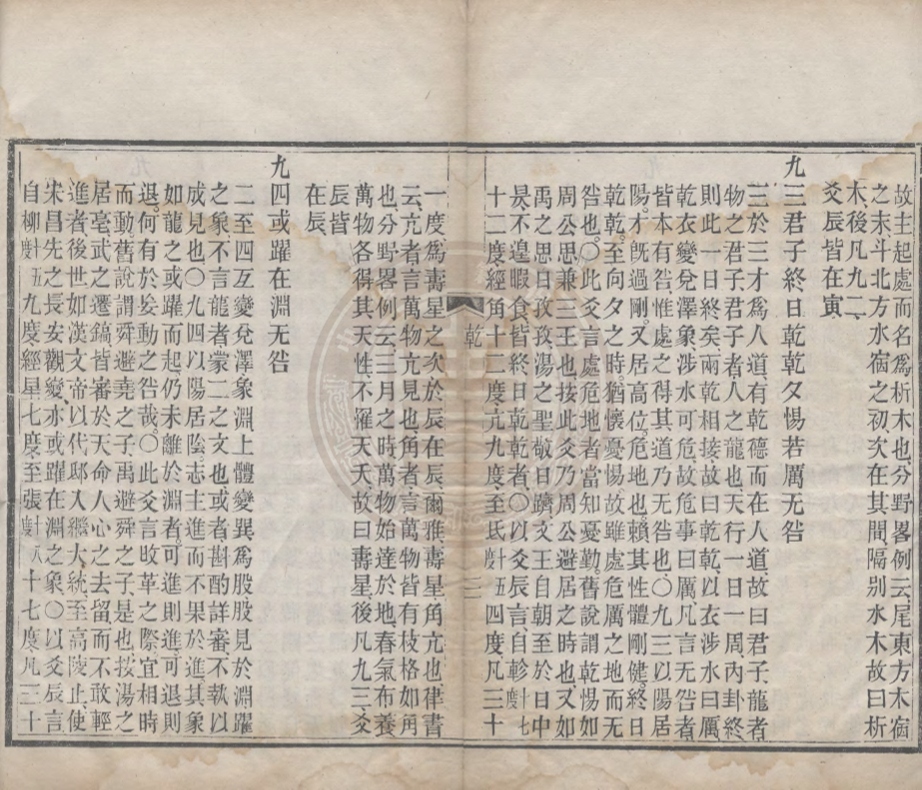 故主起處而名爲析木也分野畧例云尾東方木宿
之末斗北方水宿之初次在其間隔別水木故曰析
木後凡九二
爻辰皆在寅
九三君子終日乾乾夕惕若厲无咎
三於三才爲人道有乾德而在人道故曰君子龍者
物之君子君子者人之龍也天行一日一周內卦終
則此一日終矣兩乾相接故曰乾乾以衣涉水曰厲
乾衣變兌澤象涉水可危故危事曰厲凡言无咎者
皆本有咎惟處之得其道乃无咎也〇九三以陽居
陽才既過剛又居高位危地也賴其性體剛健終日
乾乾至向夕之時猶懷憂惕故雖處危厲之地而无
咎也〇此爻言處危地者當知憂勤舊說謂乾惕如
周公思兼三王也按此爻乃周公避居之時也又如
禹之思日孜孜湯之聖敬日躋文王自朝至於日中
昃不遑暇食皆終日乾乾者〇以爻辰言自軫七度
十二度經角十二度亢九度至氐五四度凡三十
乾
三
一度爲壽星之次於辰在辰爾雅壽星角亢也律書
云亢者言萬物亢見也角者言萬物皆有枝格如角
也分野畧例云三月之時萬物始達於地春氣布養
萬物各得其天性不罹天夭故曰壽星後凡九三爻
辰皆
在辰
九四或躍在淵无咎
二至四互變兌澤象淵上體變巽爲股股見於淵躍
之象不言龍者蒙二之文也或者斟酌詳審不執以
成見也〇九四以陽居陰志主進而不果於進其象
如龍之或躍而起仍未離於淵者可進則進可退則
退何有於妄動之咎哉〇此爻言改革之際宜相時
而動舊說謂舜避堯之子禹避舜之子是也按湯之
居亳武之遷鎬皆審於天命人心之去留而不敢輕
進者後世如漢文帝以代邸入繼大統至高陵止使
宋昌先之長安觀變亦或躍在淵之象〇以爻辰言
自柳五九度經星七度至張十七度凡三十